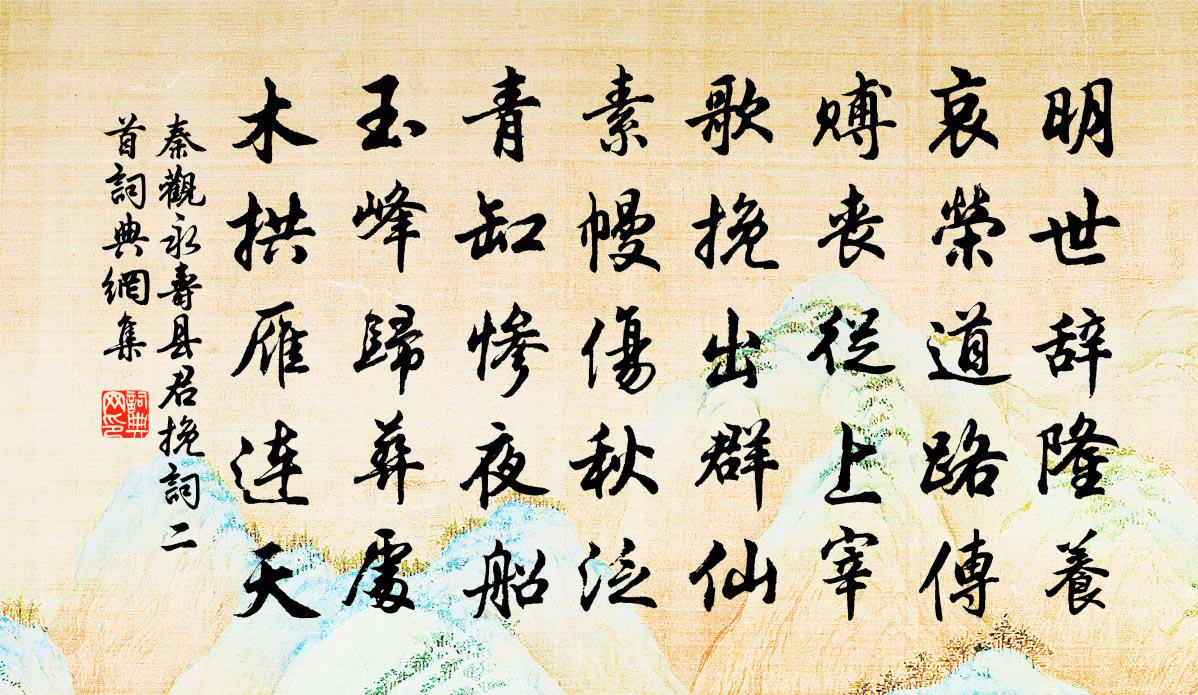 明世辞隆養
哀榮道路傳
赙丧從上宰
歌挽出群仙
素幔傷秋泛
青缸慘夜船
玉峰歸葬處
木拱雁连天
秦觀永壽县君挽詞二
首詞典網集
詞典
网印